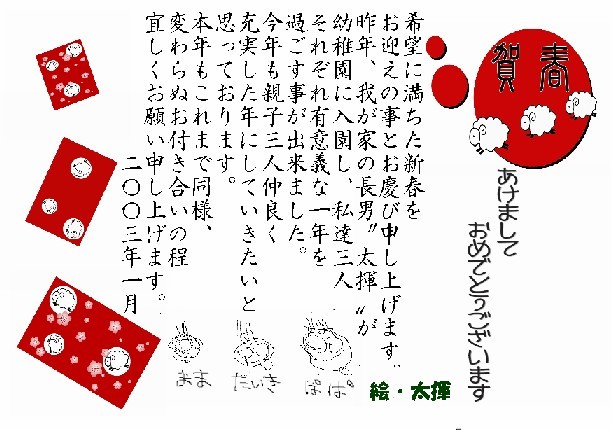 賀春
あけまして
おめでとうございます
希望に満ちた新春を
お迎えの事とお慶び申し上げます。
昨年、我が家の長男〝太揮〟が
幼稚園に入園し、私達三人
それぞれ有意義な一年を
過ごす事が出来ました。
今年も親子三人仲良く
充実した年にしていきたいと
思っております。
本年もこれまで同様、
変わらぬお付き合いの程
宜しくお願い申し上げます。
二〇〇三年一月
絵・太揮
ぱぱ
だいき
まま